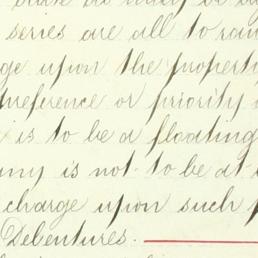 series are all to ran
ge upon the property
reference or priority
is to be a floating
any is not to be at
charge upon such p
Debentures.